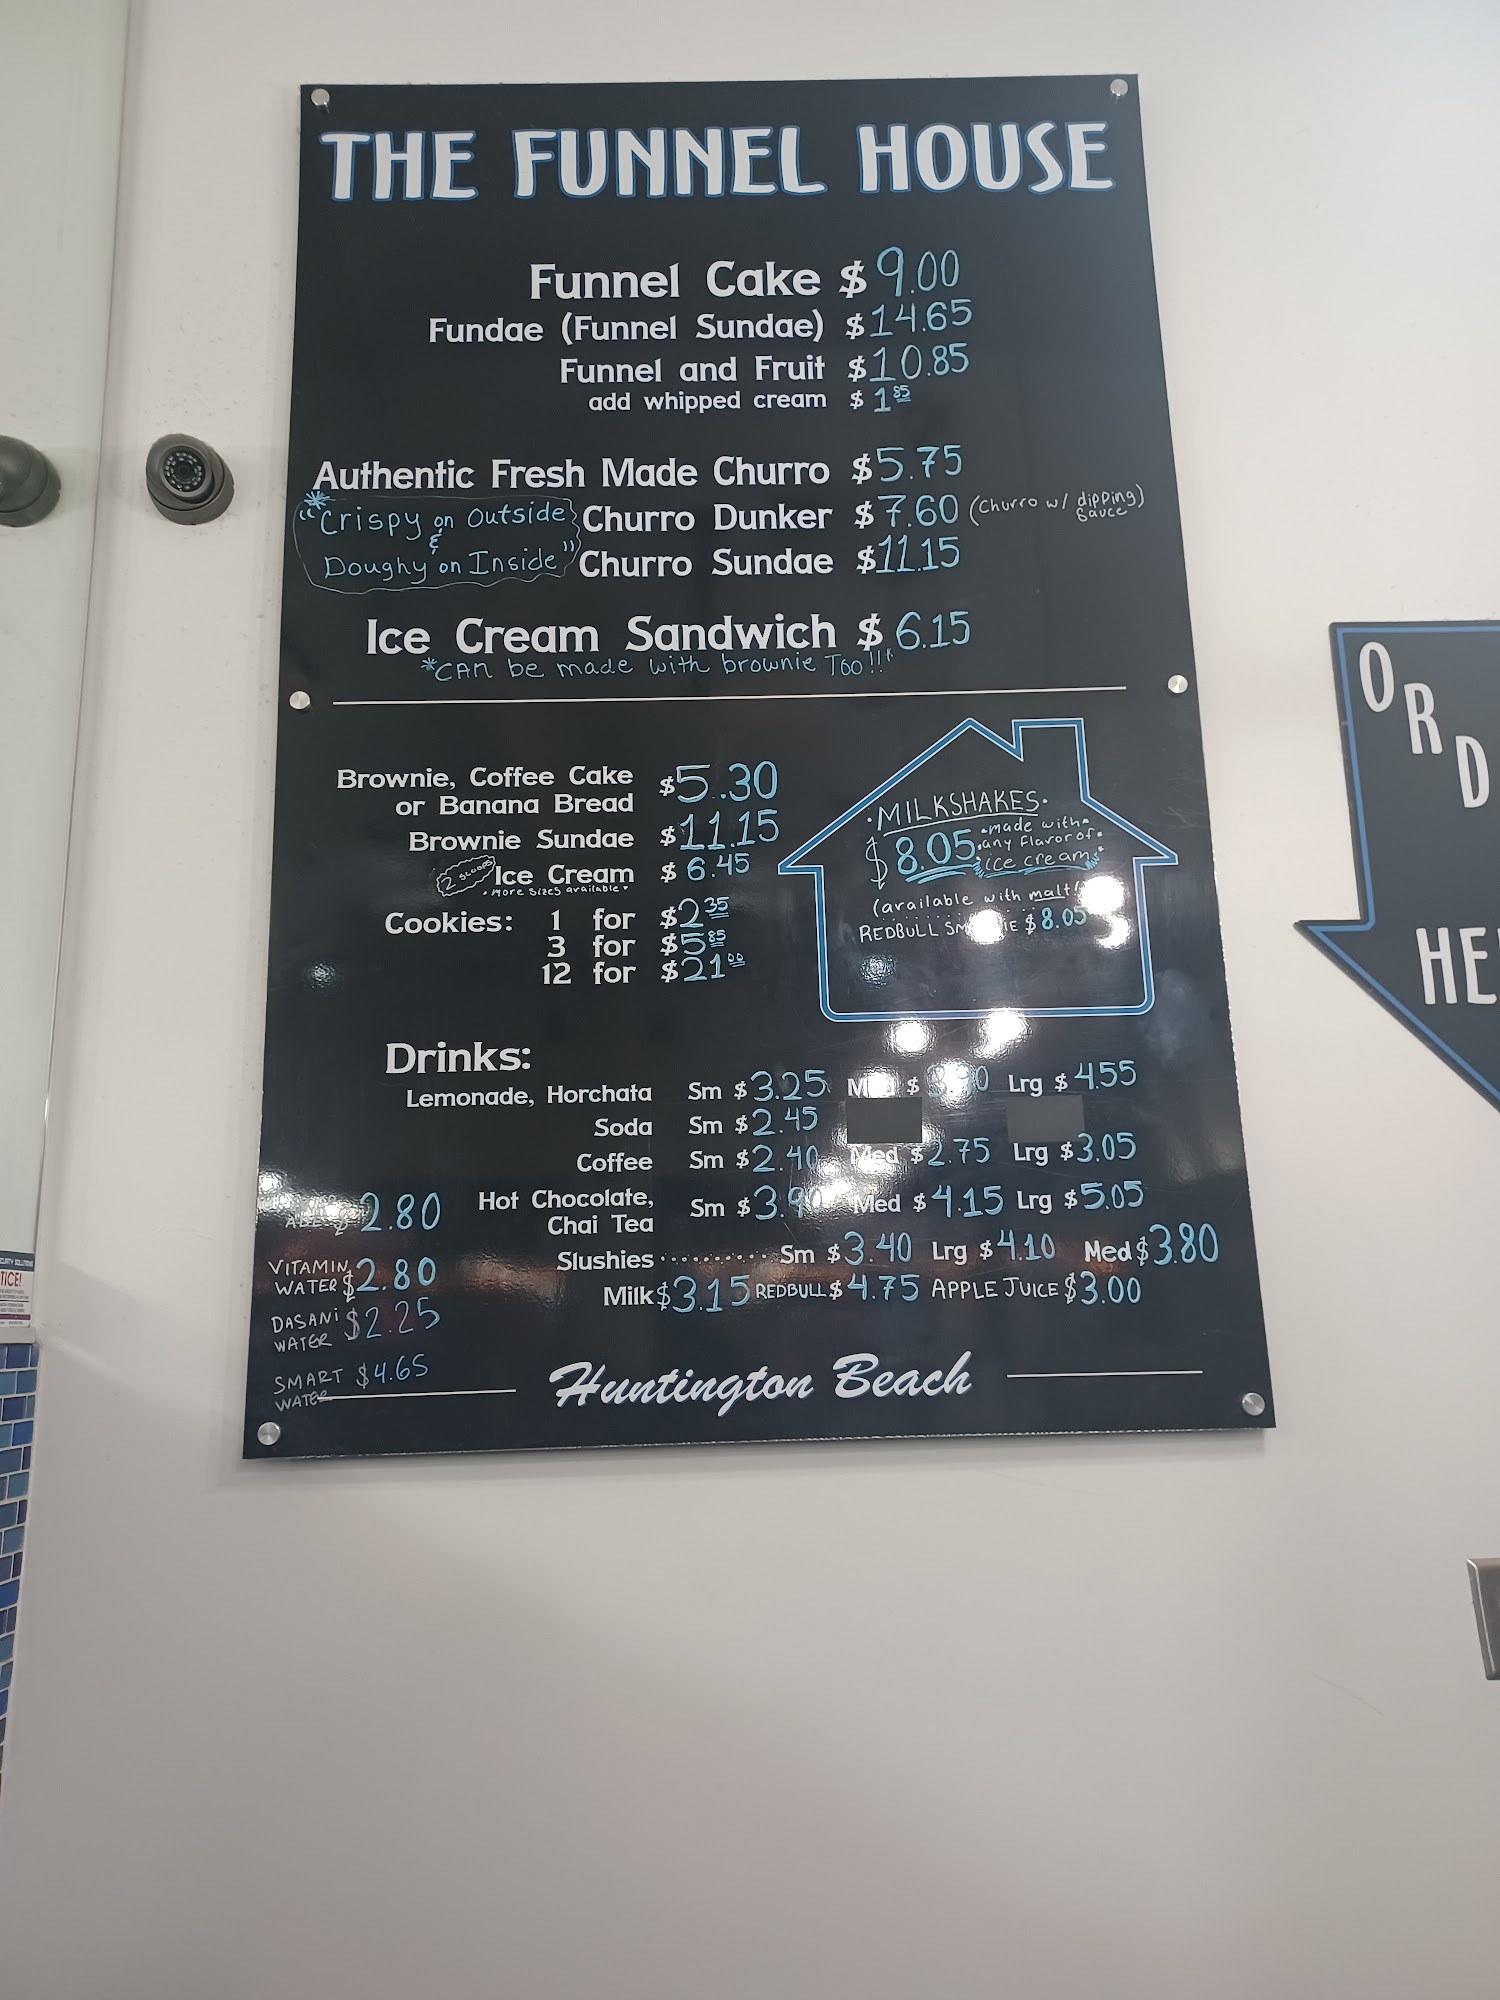 THE FUNNEL HOUSE
Funnel Cake $9.00
Fundae (Funnel Sundae) $14.65
Funnel and Fruit $10.85
add whipped cream $1.85
Authentic Fresh Made Churro $5.75
"Crispy on Outside
&
Doughy on Inside"
Churro Dunker $7.60 (Churro w/ dipping sauce)
Churro Sundae $11.15
Ice Cream Sandwich $6.15
*CAN be made with brownie Too!!*
Brownie, Coffee Cake
or Banana Bread $5.30
Brownie Sundae $11.15
2 scoops Ice Cream $6.45
•More sizes available•
Cookies: 1 for $2.35
3 for $5.85
12 for $21.00
•MILKSHAKES•
$8.05 •made with•
•any flavor of•
ice cream
(available with malt!
REDBULL $8.05
Drinks:
Lemonade, Horchata Sm $3.25 Med $ Lrg $4.55
Soda Sm $2.45
Coffee Sm $2.40 Med $2.75 Lrg $3.05
Hot Chocolate,
Chai Tea Sm $3.90 Med $4.15 Lrg $5.05
Slushies.......... Sm $3.40 Lrg $4.10 Med $3.80
Milk $3.15 REDBULL $4.75 APPLE JUICE $3.00
$2.80
VITAMIN
WATER $2.80
DASANI
WATER $2.25
SMART
WATER $4.65
Huntington Beach
ORD
HE
TICE!